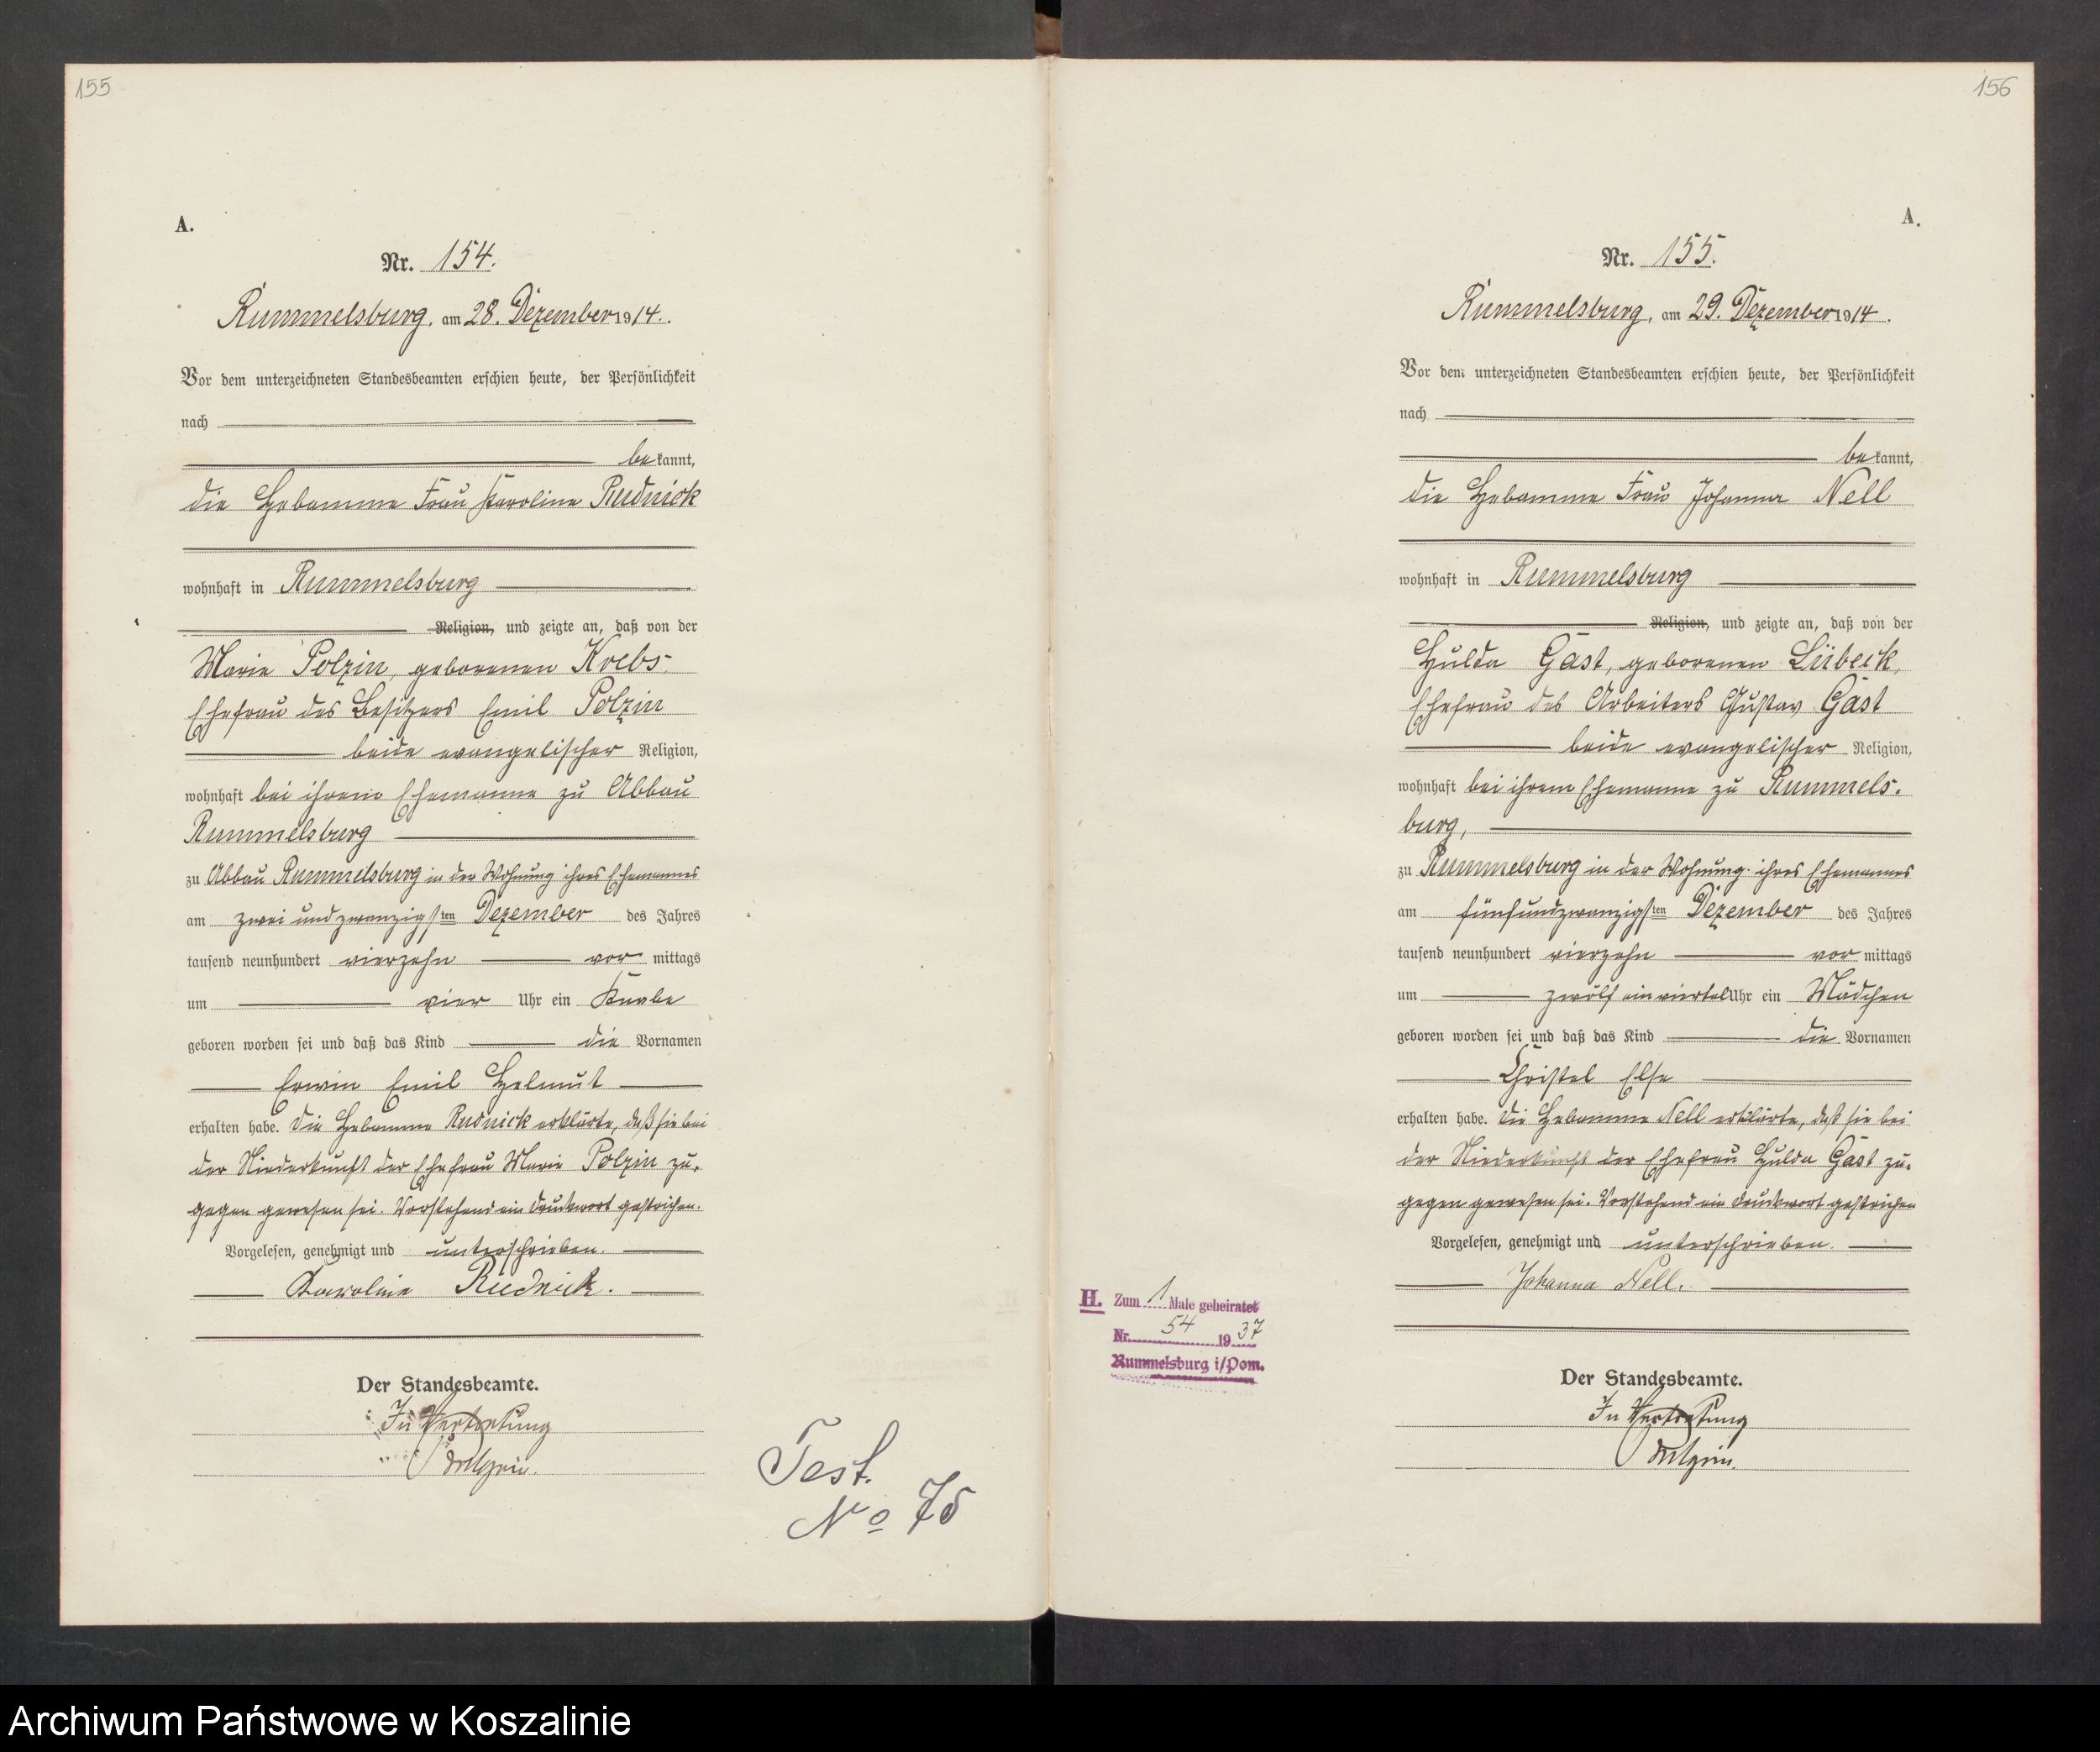 155
A.
Nr. 154.
Rummelsburg, am 28. Dezember 1914.
Vor dem unterzeichneten Standesbeamten erschien heute, der Persönlichkeit
nach
bekannt,
die Hebamme Frau Karoline Rudnick
wohnhaft in Rummelsburg
Religion, und zeigte an, daß von der
Marie Polzin, geborenen Krebs
Ehefrau des Besitzers Emil Polzin
beide evangelischer Religion,
wohnhaft bei ihrem Ehemanne zu Abbau
Rummelsburg
zu Abbau Rummelsburg in der Wohnung ihres Ehemannes
am zwei und zwanzigsten Dezember des Jahres
tausend neunhundert vierzehn vor mittags
um vier Uhr ein Knabe
geboren worden sei und daß das Kind die Vornamen
Erwin Emil Helmut
erhalten habe. Die Hebamme Rudnick erklärte, daß sie bei
der Niederkunft der Ehefrau Marie Polzin zu-
gegen gewesen sei. Vorstehend ein Druckwort gestrichen.
Vorgelesen, genehmigt und unterschrieben.
Karoline Rudnick.
Der Standesbeamte.
In Vertretung
Test.
No 75
156
A.
Nr. 155.
Rummelsburg, am 29. Dezember 1914.
Vor dem unterzeichneten Standesbeamten erschien heute, der Persönlichkeit
nach
bekannt,
die Hebamme Frau Johanna Nell
wohnhaft in Rummelsburg
Religion, und zeigte an, daß von der
Hulda Gast, geborenen Lübeck,
Ehefrau des Arbeiters Gustav Gast
beide evangelischer Religion,
wohnhaft bei ihrem Ehemanne zu Rummels-
burg,
zu Rummelsburg in der Wohnung ihres Ehemannes
am fünfundzwanzigsten Dezember des Jahres
tausend neunhundert vierzehn vor mittags
um zwölf ein viertel Uhr ein Mädchen
geboren worden sei und daß das Kind die Vornamen
Christel Else
erhalten habe. Die Hebamme Nell erklärte, daß sie bei
der Niederkunft der Ehefrau Hulda Gast zu-
gegen gewesen sei. Vorstehend ein Druckwort gestrichen
Vorgelesen, genehmigt und unterschrieben.
Johanna Nell.
H. Zum 1 Male geheiratet
Nr. 54 1937
Rummelsburg i/Pom.
Der Standesbeamte.
In Vertretung
Archiwum Państwowe w Koszalinie